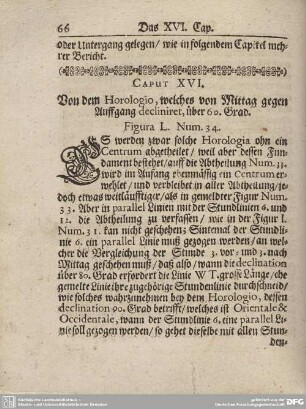 66 Das XVI. Cap.
oder Untergang gelegen / wie in folgendem Capitel meh-
rer Bericht.
CAPUT XVI.
Von dem Horologio, welches von Mittag gegen
Auffgang decliniret, über 60. Grad.
Figura L. Num. 34.
ES werden zwar solche Horologia ohn ein
Centrum abgetheilet / weil aber dessen Fun-
dament bestehet / auff die Abtheilung Num. 33.
wird im Anfang ebenmässig ein Centrum er-
wehlet / und verbleibet in aller Abtheilung / je-
doch etwas weitläufftiger / als in gemeldter Figur Num.
33. Aber in parallel Linien mit der Stundlinien 6. und
12. die Abtheilung zu verfassen / wie in der Figur I.
Num. 31. kan nicht geschehen; Sintemal der Stundli-
linie 6. ein parallel Linie muß gezogen werden / an wel-
cher die Vergleichung der Stunde 3. vor: und 3. nach
Mittag geschehen muß / daß also / wann die declination
über 80. Grad erfordert die Linie W T. grosse Länge / ehe
gemelte Linie ihre zugehörige Stundenlinie durchschneid /
wie solches wahrzunehmen bey dem Horologio, dessen
declination 90. Grad betrifft / welches ist Orientale &
Occidentale, wann der Stundlinie 6. eine parallel Li-
nie soll gezogen werden / so gehet dieselbe mit allen Stun-
den-